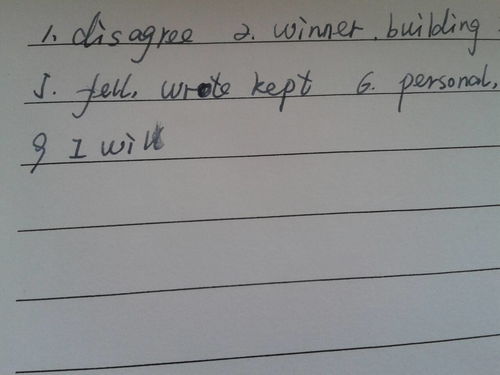 1. disagree 2. winner. building
5. fell, wrote kept 6. personal,
9 I will